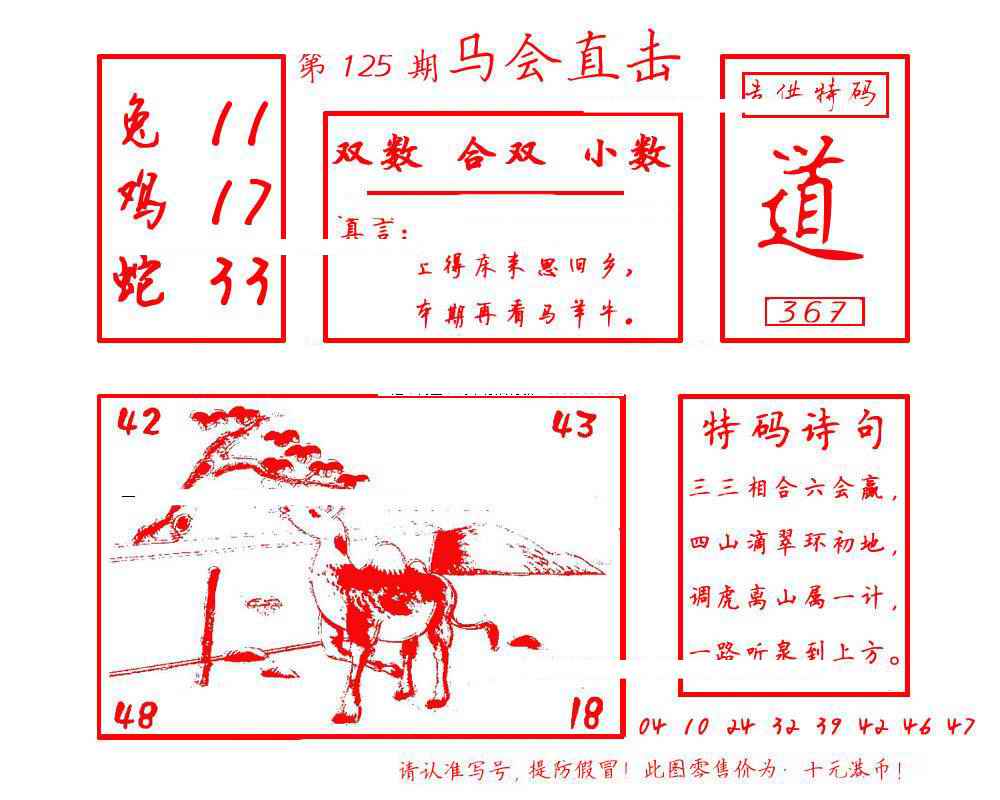 第 125 期 马会直击
兔 11
鸡 17
蛇 33
双数 合双 小数
真言：
上得床来思旧乡，
本期再看马羊牛。
供特码
道
367
42 43
48 18
特码诗句
三三相合六会赢，
四山滴翠环初地，
调虎离山属一计，
一路听泉到上方。
04 10 24 32 39 42 46 47
请认准写号，提防假冒！此图零售价为·十元港币！